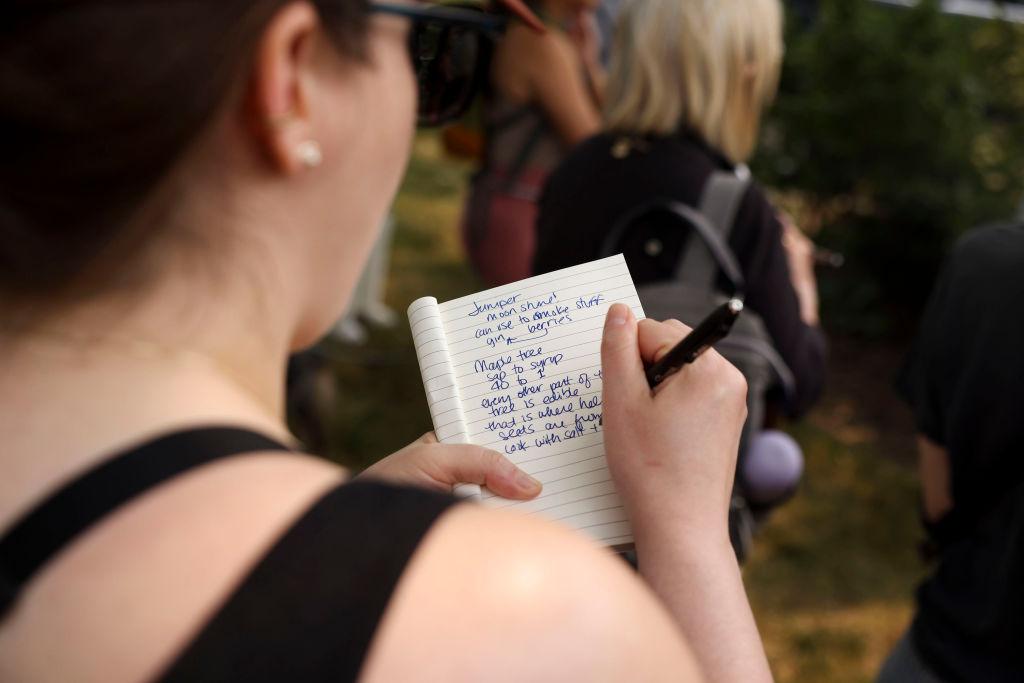 Juniper
moon shine!
can use to smoke stuff
gin berries
Maple tree
sap to syrup
40 to 1
every other part of
tree is edible
that is where hel
seats are from
cook with salt +